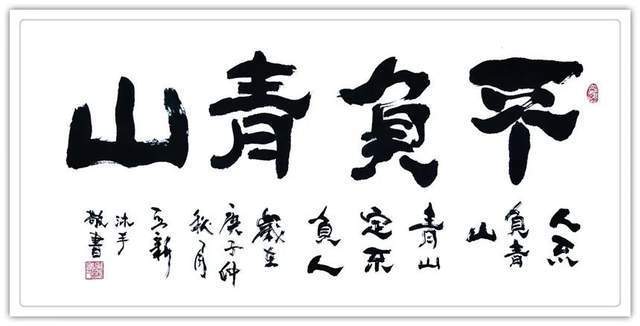 不負青山
人不
負青
山
青山
定不
負人
歲在
庚子仲
秋月
新
沐手
敬書